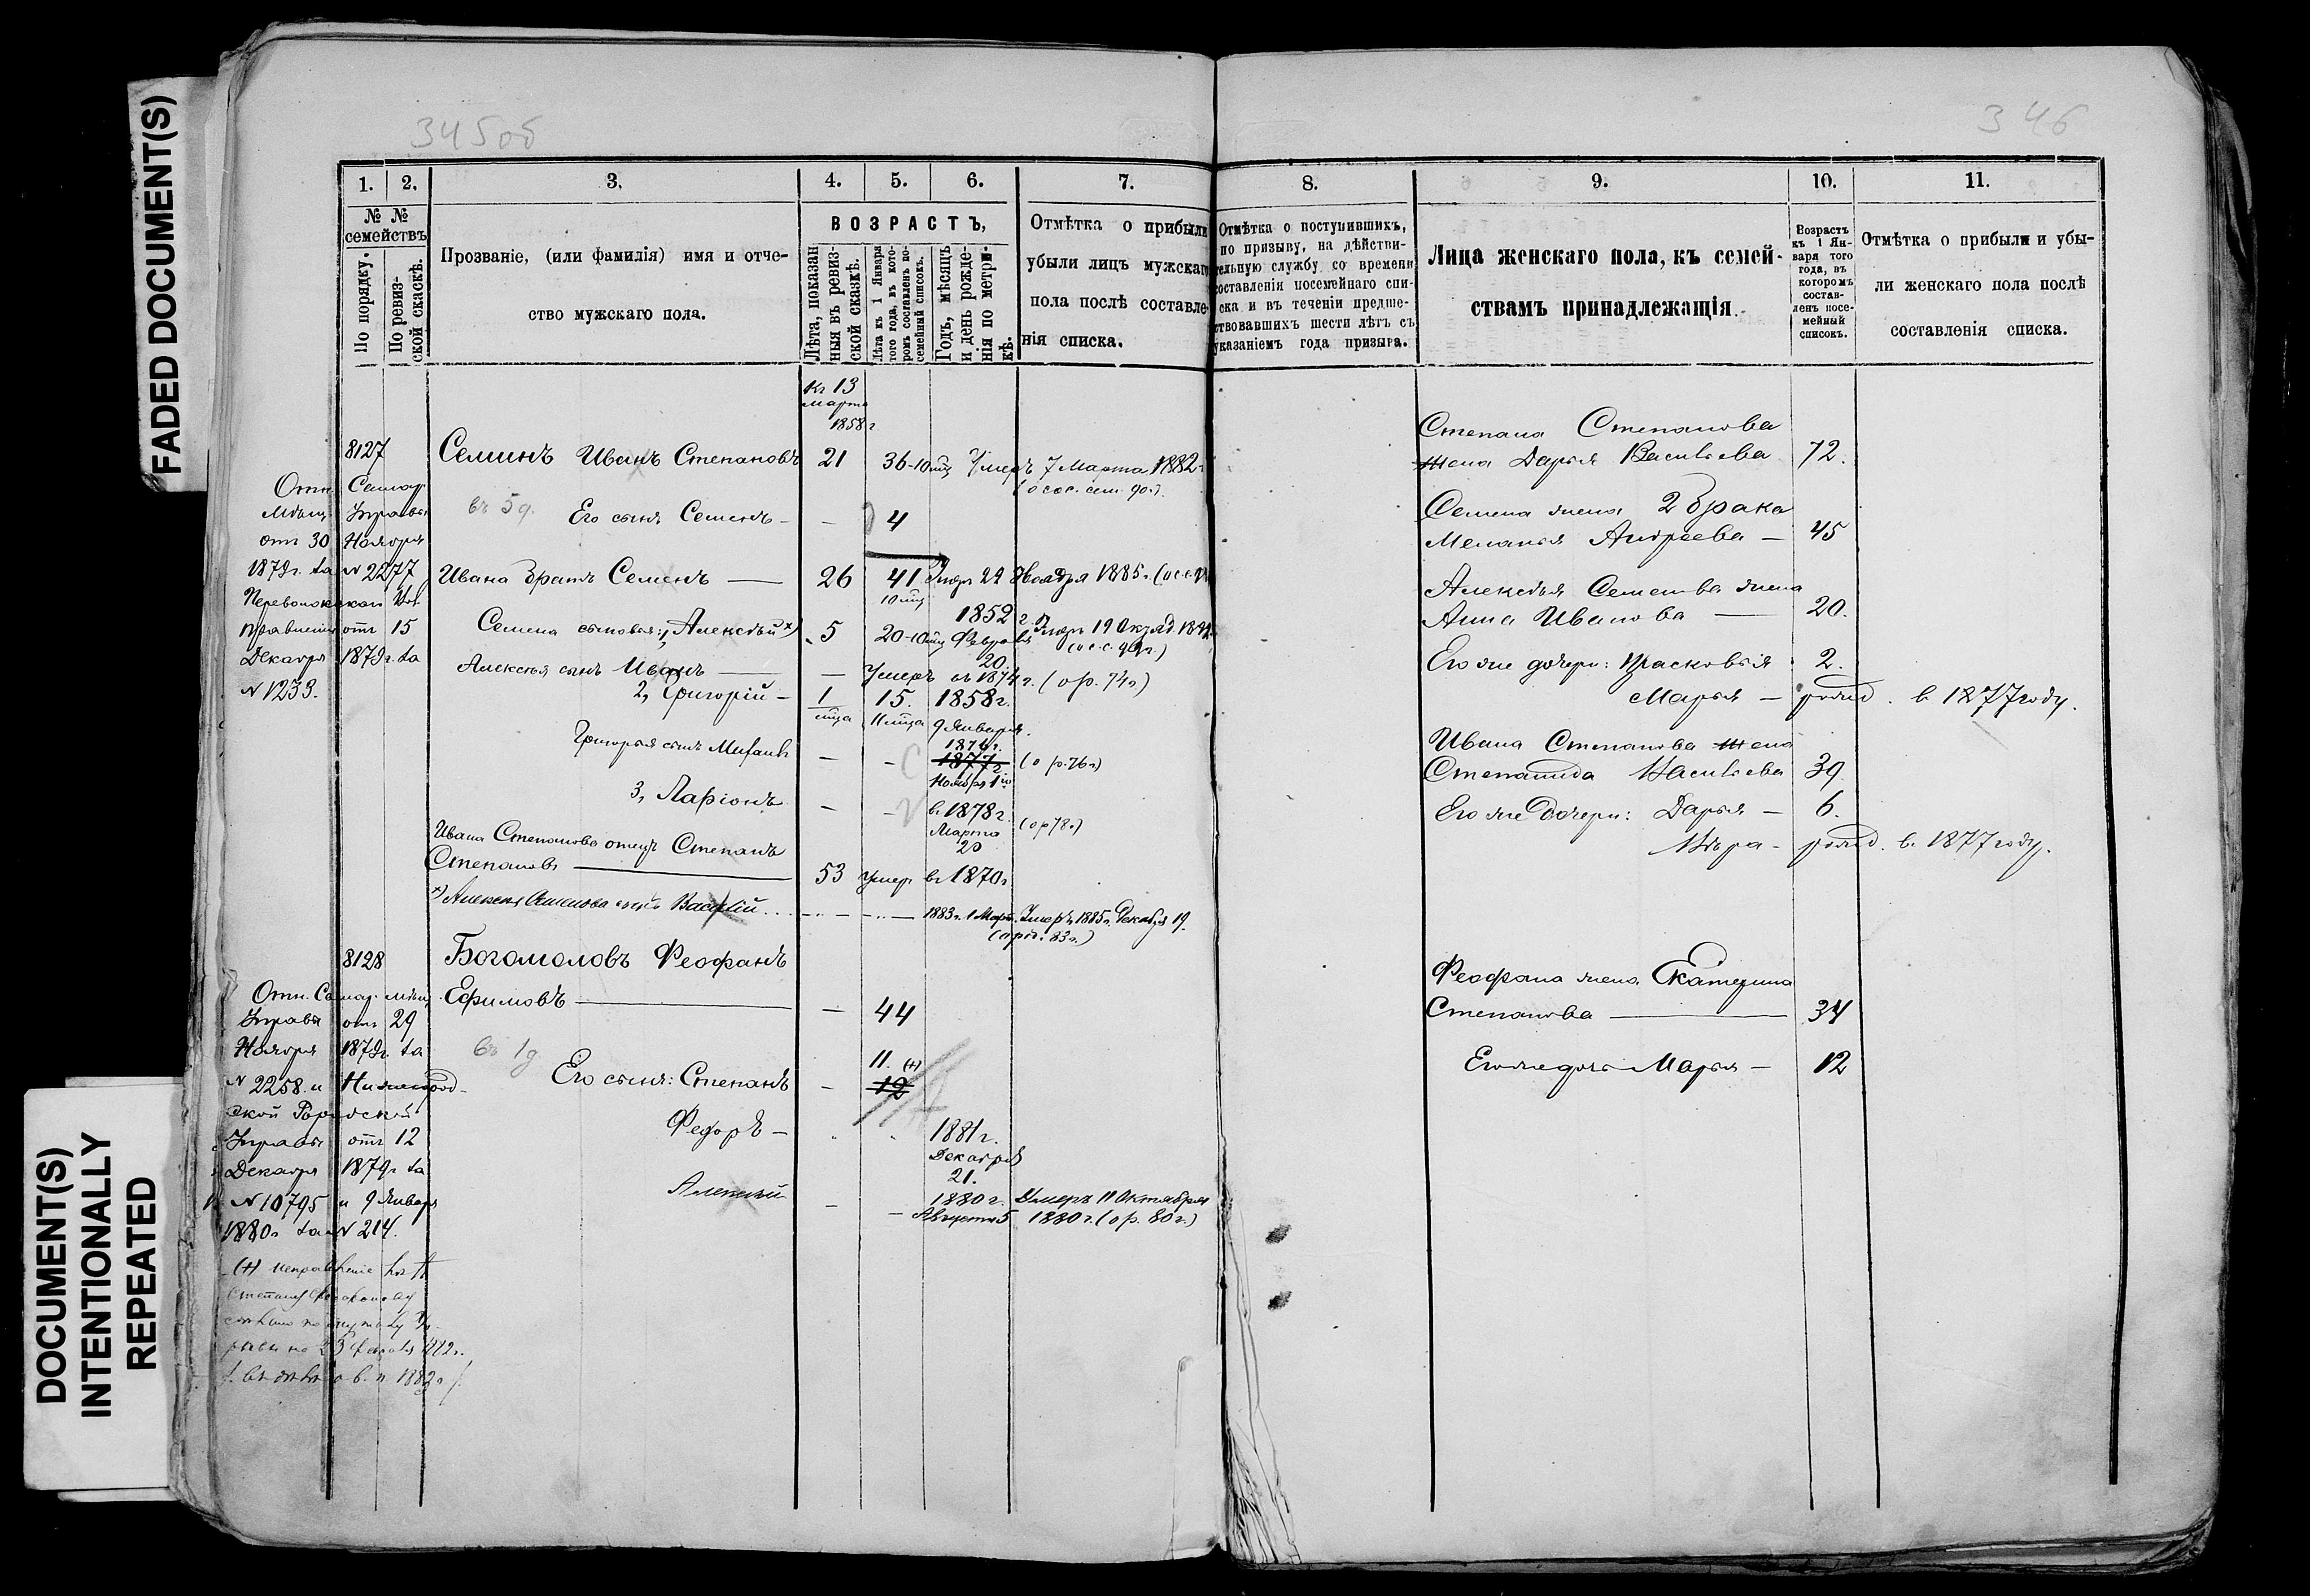 FADED DOCUMENT(S)
DOCUMENT(S)
INTENTIONALLY
REPEATED
345об
346
1. 2. 3. 4. 5. 6. 7. 8. 9. 10. 11.
№ №
семействъ
По порядку.
По ревиз-
ской сказкѣ.
Прозваніе, (или фамилія) имя и отче-
ство мужскаго пола.
ВОЗРАСТЪ,
Лѣта, показан
ныя въ ревиз-
ской сказкѣ.
Лѣта къ 1 Января
того года, въ кото-
ромъ составленъ по-
семейный списокъ.
Годъ, мѣсяцъ
и день рожде-
нія по метри-
кѣ.
Отмѣтка о прибыли
убыли лицъ мужскаго
пола послѣ составле-
нія списка.
Отмѣтка о поступившихъ,
по призыву, на дѣйстви-
тельную службу со времени
составленія посемейнаго спи-
ска и въ теченіи предше-
ствовавшихъ шести лѣтъ съ
указаніемъ года призыва.
Лица женскаго пола, къ семей-
ствамъ принадлежащія.
Возрастъ
къ 1 Ян-
варя того
года, въ
которомъ
состав-
ленъ посе-
мейный
списокъ.
Отмѣтка о прибыли и убы-
ли женскаго пола послѣ
составленія списка.
Къ 13
Марта
1858 г
8127 Семинъ Иванъ Степановъ 21 36-10 мц Умеръ 7 Марта 1882 г
Отн. Самар.
Мѣщ. Управы
отъ 30 Ноября
1879 г. за № 2277
отъ 15
Декабря 1879 г. за
№ 1233.
въ 5 д. Его сынъ Семенъ - — 4
Ивана братъ Семенъ — 26 41 10 мц Умеръ 22 Ноября 1885 г.
Семена сыновья: 1, Алексѣй х) 5 20-10 мц 1852 г Февраля 20. Умеръ 19
Алексѣя сынъ Иванъ — — Умеръ въ 1874 г. (о р. 74 г)
2, Григорій - 1 мца 15. 11 мца 1858 г. 9 Января.
Григорья сынъ — - 1877 г Ноября 1го (о р. 76 г)
3, Ларіонъ — - в. 1878 г. Марта 20 (о р 78 г.)
Ивана Степанова отецъ Степанъ
Степановъ — 53 умер въ 1870 г
х) Алексѣя Семенова сынъ Василій 1883 г. 1 Март. Умеръ 1885 г. Декабря 19.
(о род. 83 г.)
8128 Богомоловъ Феофанъ
Ефимовъ — — 44
Отн. Самар. мѣщ.
Управы отъ 29
Ноября 1879 г. за
№ 2258. и Нижегород-
ской Городской
Управы отъ 12
Декабря 1879 г за
№ 10795 и 9 Января
1880 г за № 214.
въ 1 д Его сынъ: Степанъ - 11. (+) 12
Федоръ - 1881 г. Декабря 21.
Алексѣй - - 1880 г. Августа 5 Умеръ 11 Октября
1880 г. (о р. 80 г.)
Степана Степанова
жена Дарья Васильева 72.
Семена жена 2 брака
Меланья Андреева — 45
Алексѣя Семенова жена
Анна Иванова — 20.
Его же дочери: Прасковья 2.
Марья — рожд. в 1877 году.
Ивана Степанова жена
Степанида Васильева 39.
Его же дочери: Дарья — 6.
Вѣра - рожд. в. 1877 году.
Феофана жена Екатерина
Степанова — 34
Его же дочь Марья — 12